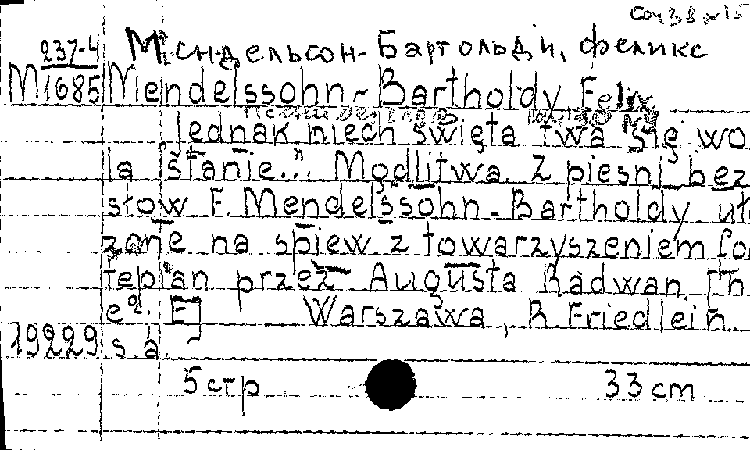 Соч 38 №15
237-4 Мендельсон-Бартольди, Феликс
М1685 Mendelssohn-Bartholdy Felix
"Jednak niech święta twa się wo
la stanie..." Modlitwa. Z pieśni bez
słow F. Mendelssohn-Bartholdy uło
żone na śpiew z towarzyszeniem for
tepian przez Augusta Radwan. [Ch
e]. E] Warszawa, R. Friedlein.
19229 s. a.
5 стр 33 cm